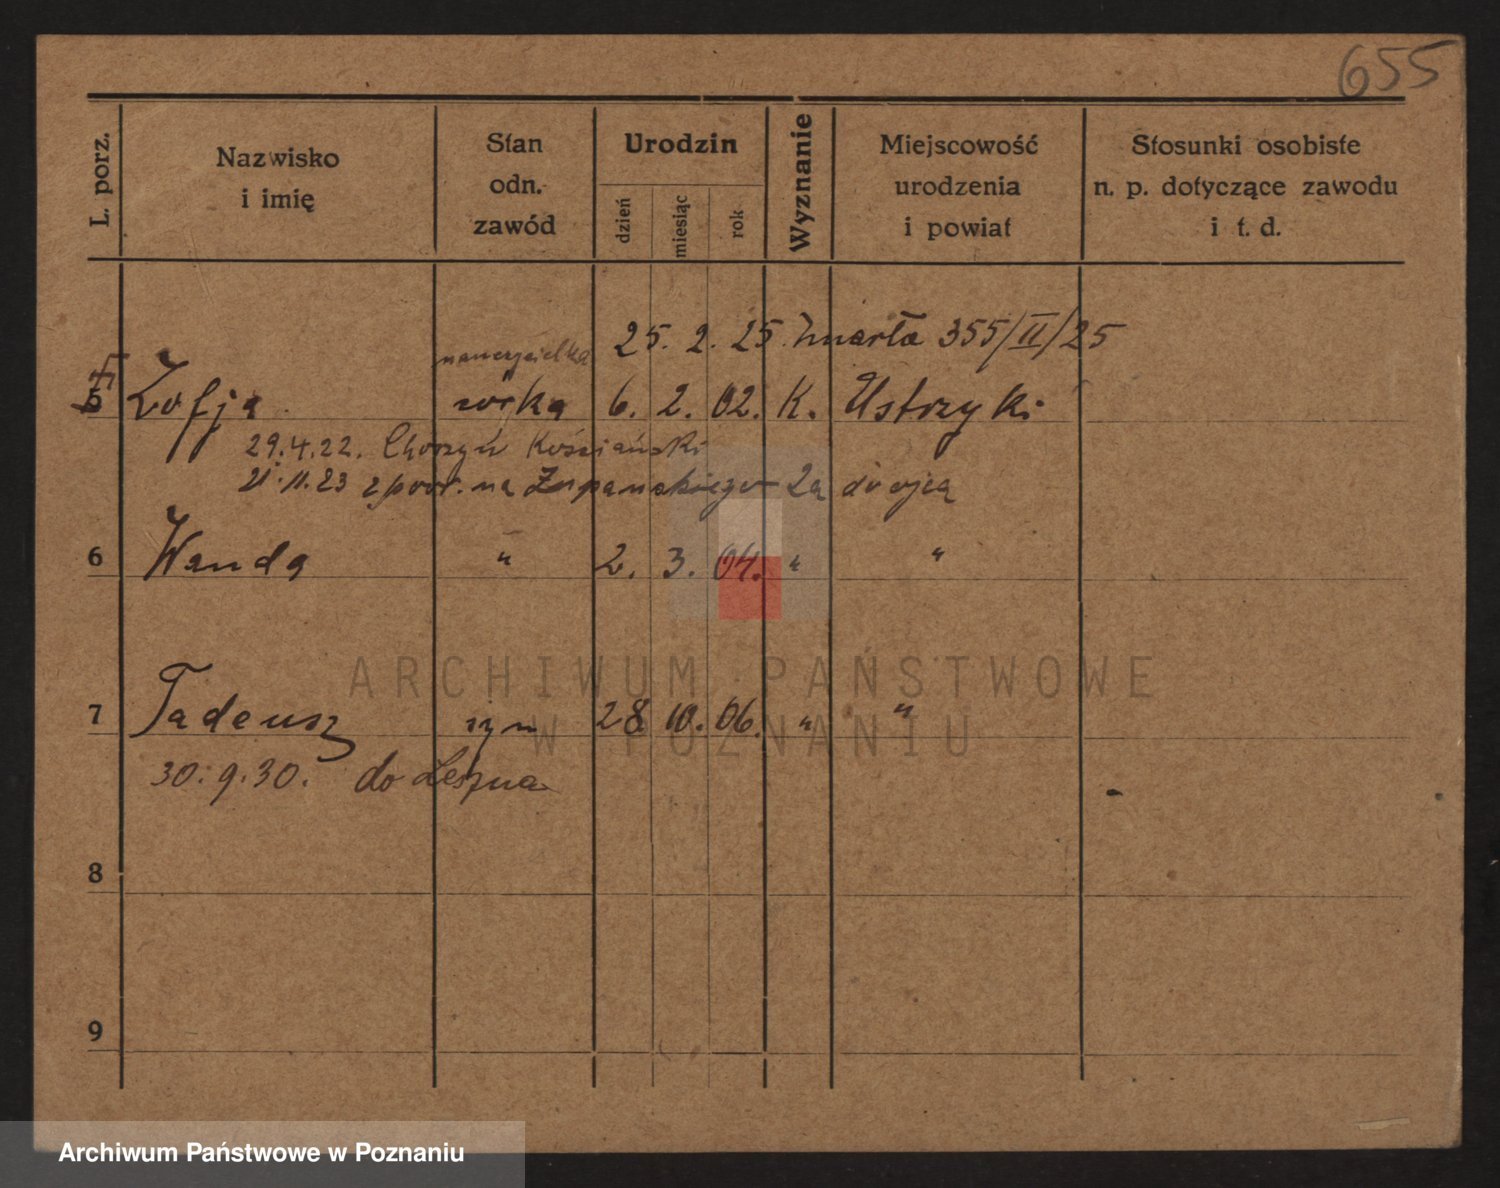 655
L. porz.
Nazwisko
i imię
Stan
odn.
zawód
Urodzin
dzień
miesiąc
rok
Wyznanie
Miejscowość
urodzenia
i powiat
Stosunki osobiste
n. p. dotyczące zawodu
i t. d.
25. 2. 25. Zmarła 355/II/25
nauczycielka
5 Zofja córka 6. 2. 02. K. Ustrzyki
29.4.22. Choryń Kościański
21.11.23 z powr. na Żupańskiego 2a do ojca
6 Wanda " 2. 3. 04. " "
7 Tadeusz syn 28 10. 06. " "
30.9.30. do Leszna
8
9
ARCHIWUM PAŃSTWOWE
W POZNANIU
Archiwum Państwowe w Poznaniu